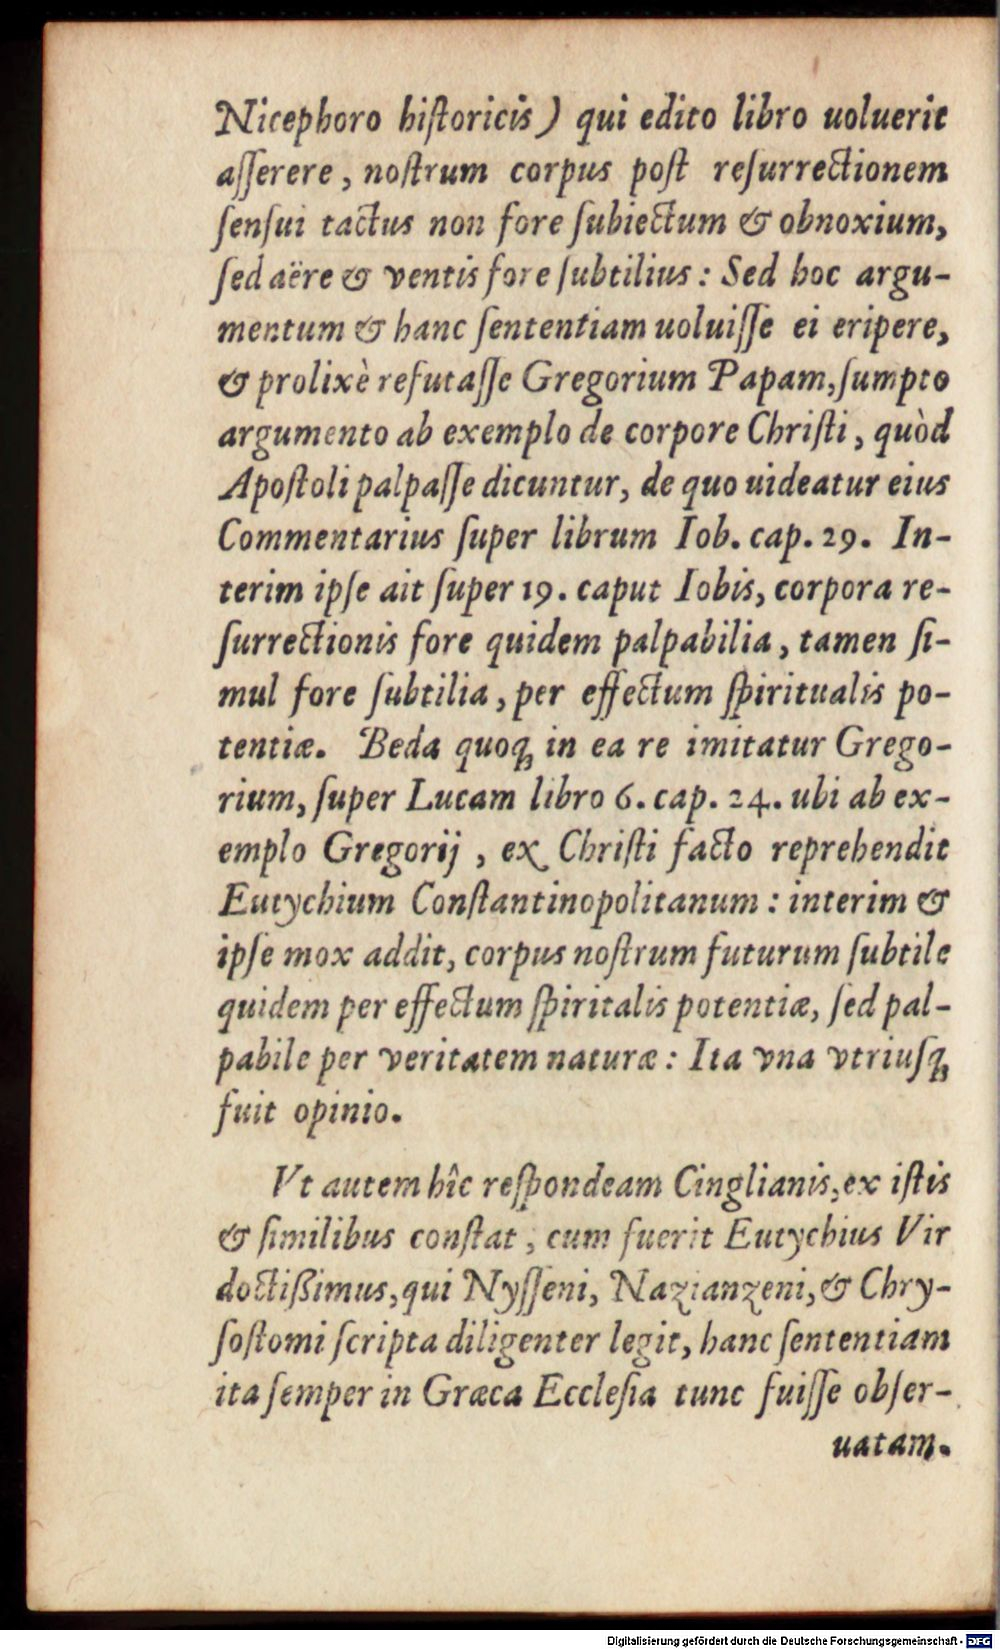 Nicephoro hiſtoricis) qui edito libro uoluerit
aſſerere, noſtrum corpus poſt reſurrectionem
ſenſui tactus non fore ſubiectum & obnoxium,
ſed aëre & ventis fore ſubtilius: Sed hoc argu-
mentum & hanc ſententiam uoluiſſe ei eripere,
& prolixè refutaſſe Gregorium Papam, ſumpto
argumento ab exemplo de corpore Chriſti, quòd
Apoſtoli palpaſſe dicuntur, de quo uideatur eius
Commentarius ſuper librum Iob. cap. 29. In-
terim ipſe ait ſuper 19. caput Iobis, corpora re-
ſurrectionis fore quidem palpabilia, tamen ſi-
mul fore ſubtilia, per effectum ſpiritualis po-
tentiæ. Beda quoq; in ea re imitatur Grego-
rium, ſuper Lucam libro 6. cap. 24. ubi ab ex-
emplo Gregorij, ex Chriſti facto reprehendit
Eutychium Conſtantinopolitanum: interim &
ipſe mox addit, corpus noſtrum futurum ſubtile
quidem per effectum ſpiritalis potentiæ, ſed pal-
pabile per veritatem naturæ: Ita vna vtriuſq;
fuit opinio.
Vt autem hîc reſpondeam Cinglianis, ex iſtis
& ſimilibus conſtat, cum fuerit Eutychius Vir
doctißimus, qui Nyſſeni, Nazianzeni, & Chry-
ſoſtomi ſcripta diligenter legit, hanc ſententiam
ita ſemper in Græca Eccleſia tunc fuiſſe obſer-
uatam.
Digitalisierung gefördert durch die Deutsche Forschungsgemeinschaft - DFG